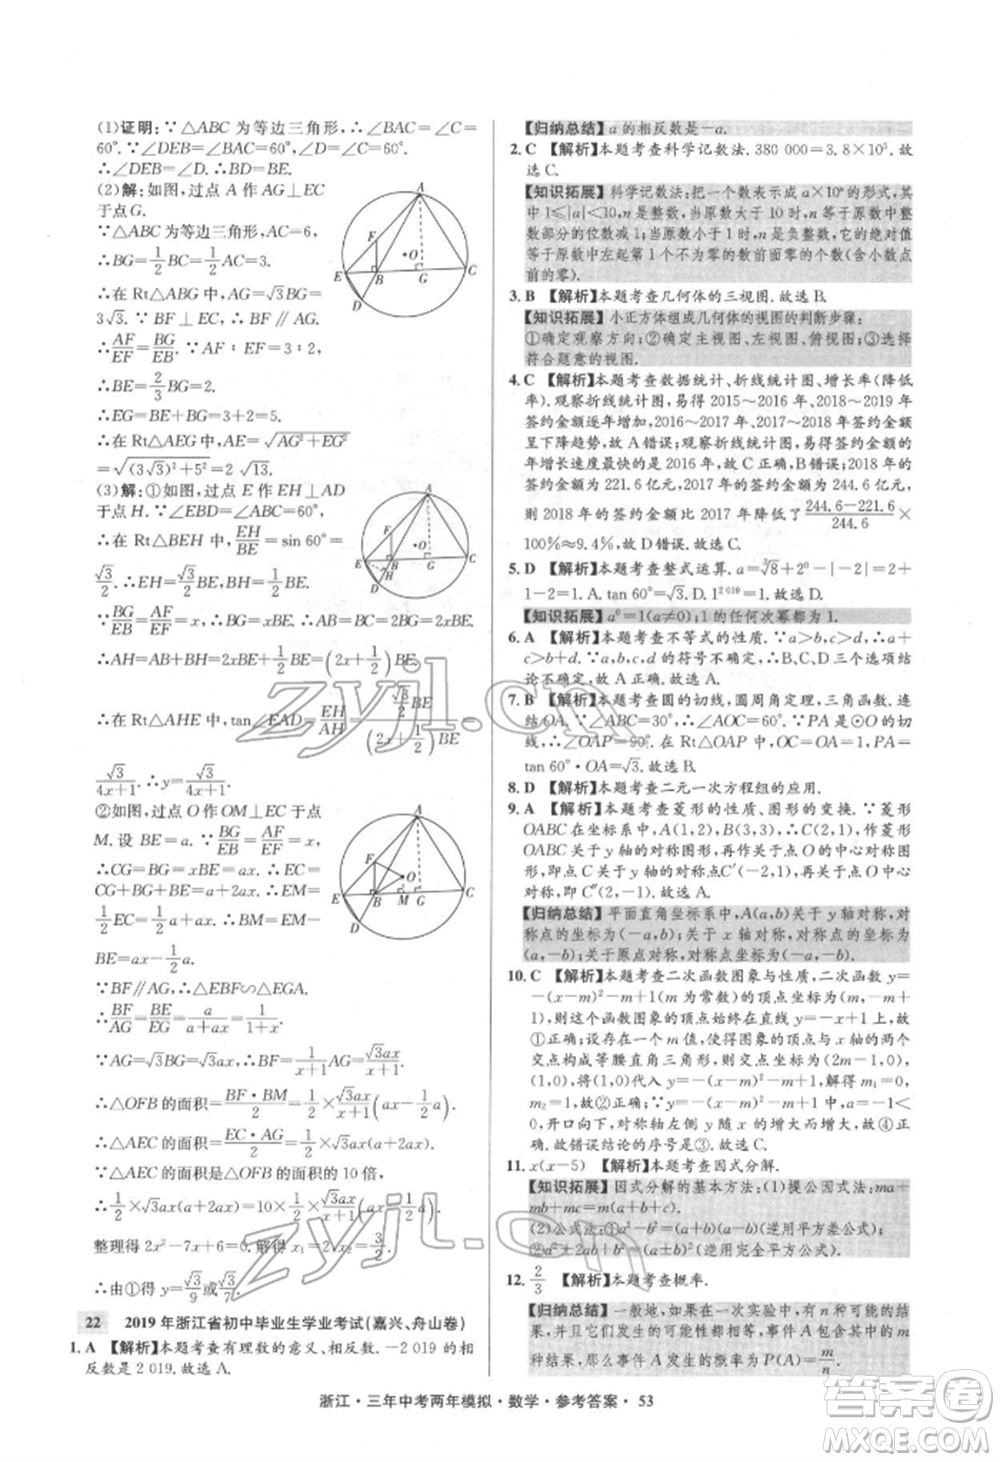 (1)证明:∵△ABC 为等边三角形,∴∠BAC=∠C=
60°.∵∠DEB=∠BAC=60°,∠D=∠C=60°,
∴∠DEB=∠D.
(2)解:如图,过点 A 作 AG⊥EC
于点 G.
∵△ABC 为等边三角形,AC=6,
∴BG=1/2 BC=1/2 AC=3.
∴在 Rt△ABG 中,AG=√3BG=
3√3.∵BF⊥EC,∴BF∥AG.
∴AF/EF=BG/EB.∵AF∶EF=3∶2,
∴BE=2/3 BG=2.
∴EG=BE+BG=3+2=5.
∴在 Rt△AEG 中,AE=√(AG²+EG²)
=√((3√3)²+5²)=2√13.
(3)解:①如图,过点 E 作 EH⊥AD
于点 H.∵∠EBD=∠ABC=60°,
∴在 Rt△BEH 中,EH/BE=sin 60°=
√3/2.∴EH=√3/2 BE,BH=1/2 BE.
∵BG/EB=AF/EF=x,∴BG=xBE.
∴AB=BC=2BG=2xBE.
∴AH=AB+BH=2xBE+1/2 BE=(2x+1/2)BE.
∴在 Rt△AHE 中,tan∠EAD=EH/AH=(√3/2 BE)/((2x+1/2)BE)=
√3/(4x+1).∴y=√3/(4x+1).
②如图,过点 O 作 OM⊥EC 于点
M.设 BE=a.∵BG/EB=AF/EF=x,
∴CG=BG=xBE=ax.
∴EC=CG+BG+BE=a+2ax.∴EM=
1/2 EC=1/2 a+ax.∴BM=EM-BE=
ax-1/2 a.
∵BF∥AG,∴△EBF∽△EGA.
∴BF/AG=BE/EG=a/(a+ax)=1/(1+x).
∵AG=√3BG=√3ax,∴BF=1/(x+1)AG=√3ax/(x+1).
∴△OFB 的面积=BF·BM/2=1/2×√3ax/(x+1)(ax-1/2 a).
∴△AEC 的面积=EC·AG/2=1/2×√3ax(a+2ax).
∵△AEC 的面积是△OFB 的面积的 10 倍,
∴1/2×√3ax(a+2ax)=10×1/2×√3ax/(x+1)(ax-1/2 a).
整理得 2x²-7x+6=0.解得 x₁=2,x₂=3/2.
∴由①得 y=√3/9 或 y=√3/7.
22 2019 年浙江省初中毕业生学业考试(嘉兴、舟山卷)
1. A 【解析】本题考查有理数的意义、相反数.-2 019 的相
反数是 2 019.故选 A.
【归纳总结】a 的相反数是-a.
2. C 【解析】本题考查科学记数法.380 000=3.8×10⁵.
故选 C.
【知识拓展】科学记数法:把一个数表示成 a×10ⁿ 的形式,其
中 1≤|a|<10,n 是整数,当原数大于 10 时,n 等于原数的
整数位数减 1;当原数小于 1 时,n 是负整数,整数 n 的绝对
值等于原数中左起第 1 个不为零的数前面零的个数(含小数点
前的零).
3. B 【解析】本题考查几何体的三视图.故选 B.
【知识拓展】小正方体组成几何体的视图的判断步骤:
①确定观察方向;②确定主视图、左视图、俯视图;③选择
符合题意的视图.
4. C 【解析】本题考查数据统计、折线统计图、增长率(降低
率).观察折线统计图,发现 2015~2016 年、2018~2019 年
签约金额逐年增加,2016~2017 年、2017~2018 年签约金额
呈下降趋势,故 A 错误;观察折线统计图,签约金额的增长
速度最快的是 2016 年,故 C 正确,B 错误;2017 年的签
约金额为 221.6 亿元,2017 年的签约金额为 244.6 亿元,
则 2018 年的签约金额比 2017 年降低了(244.6-221.6)/244.6×
100%≈9.4%,故 D 错误.故选 C.
5. D 【解析】本题考查整式运算.a=³√8+2⁰-|-2|=2+
1-2=1.A. tan 60°=√3.D.1²⁰¹⁹=1.故选 D.
【知识拓展】a⁰=1(a≠0);1 的任何次幂都为 1.
6. A 【解析】本题考查不等式的性质.∵a>b,c>d,∴a+
c>b+d.∵a,b,c,d 的符号不确定,∴B、C、D 选项结
论不正确,故 A 正确.故选 A.
7. B 【解析】本题考查圆的切线,圆周角定理,三角函数.连
结 OA.∵∠ABC=30°,∴∠AOC=60°.∵PA 是⊙O 的切
线,∴∠OAP=90°.在 Rt△OAP 中,∠AOP=60°,∴PA=
tan 60°·OA=√3.故选 B.
8. D 【解析】本题考查二元一次方程组的应用.
9. A 【解析】本题考查菱形的性质、图形的变换.∵菱形
OABC 在坐标系中,A(1,2),B(3,3),∴C(2,1),作菱形
OABC 关于 y 轴的对称图形,再作关于点 O 的中心对称图
形,即点 C 先作 y 轴的对称点 C′(-2,1),再作关于点 O 中心
对称,即 C″(2,-1).故选 A.
【归纳总结】平面直角坐标系中,A(a,b)关于 y 轴对称,对
称点的坐标为(-a,b);关于 x 轴对称,对称点的坐标为
(a,-b);关于原点对称,对称点的坐标为(-a,-b).
10. C 【解析】本题考查二次函数图象与性质,二次函数 y=
-(x-m)²-m+1(m 为常数)的顶点坐标为(m,-m+
1),∴这个函数图象的顶点始终在直线 y=-x+1 上,故
①正确.存在一个 m 的值,使得函数图象的顶点与 x 轴的两个
交点构成等腰直角三角形,则交点坐标为(2m-1,0),
(1,0),将(1,0)代入 y=-(x-m)²-m+1,解得 m₁=0,
m₂=1.故②正确.
∴当-1<x<2 时,y 随 x 的增大而增大,且 a=-1<0,∴m 的取值范围为 m≥2.故④正
确.故错误结论的序号是③.故选 C.
11. x(x-5) 【解析】本题考查因式分解.
【知识拓展】因式分解的基本方法:(1)提公因式法:ma+
mb+mc=m(a+b+c).
(2)公式法:①a²-b²=(a+b)(a-b)(逆用平方差公式);
②a²±2ab+b²=(a±b)²(逆用完全平方公式).
12. 2/3 【解析】本题考查概率.
【归纳总结】一般地,如果一个试验有 n 种等可能的结
果,事件 A 包含其中的 m 种结果(m≤n),那么事件 A
发生的概率为 P(A)=m/n.
浙江·三年中考两年模拟·数学·参考答案·53
zyjl.cn
zyjl.cn
作业精灵
MXQE.COM